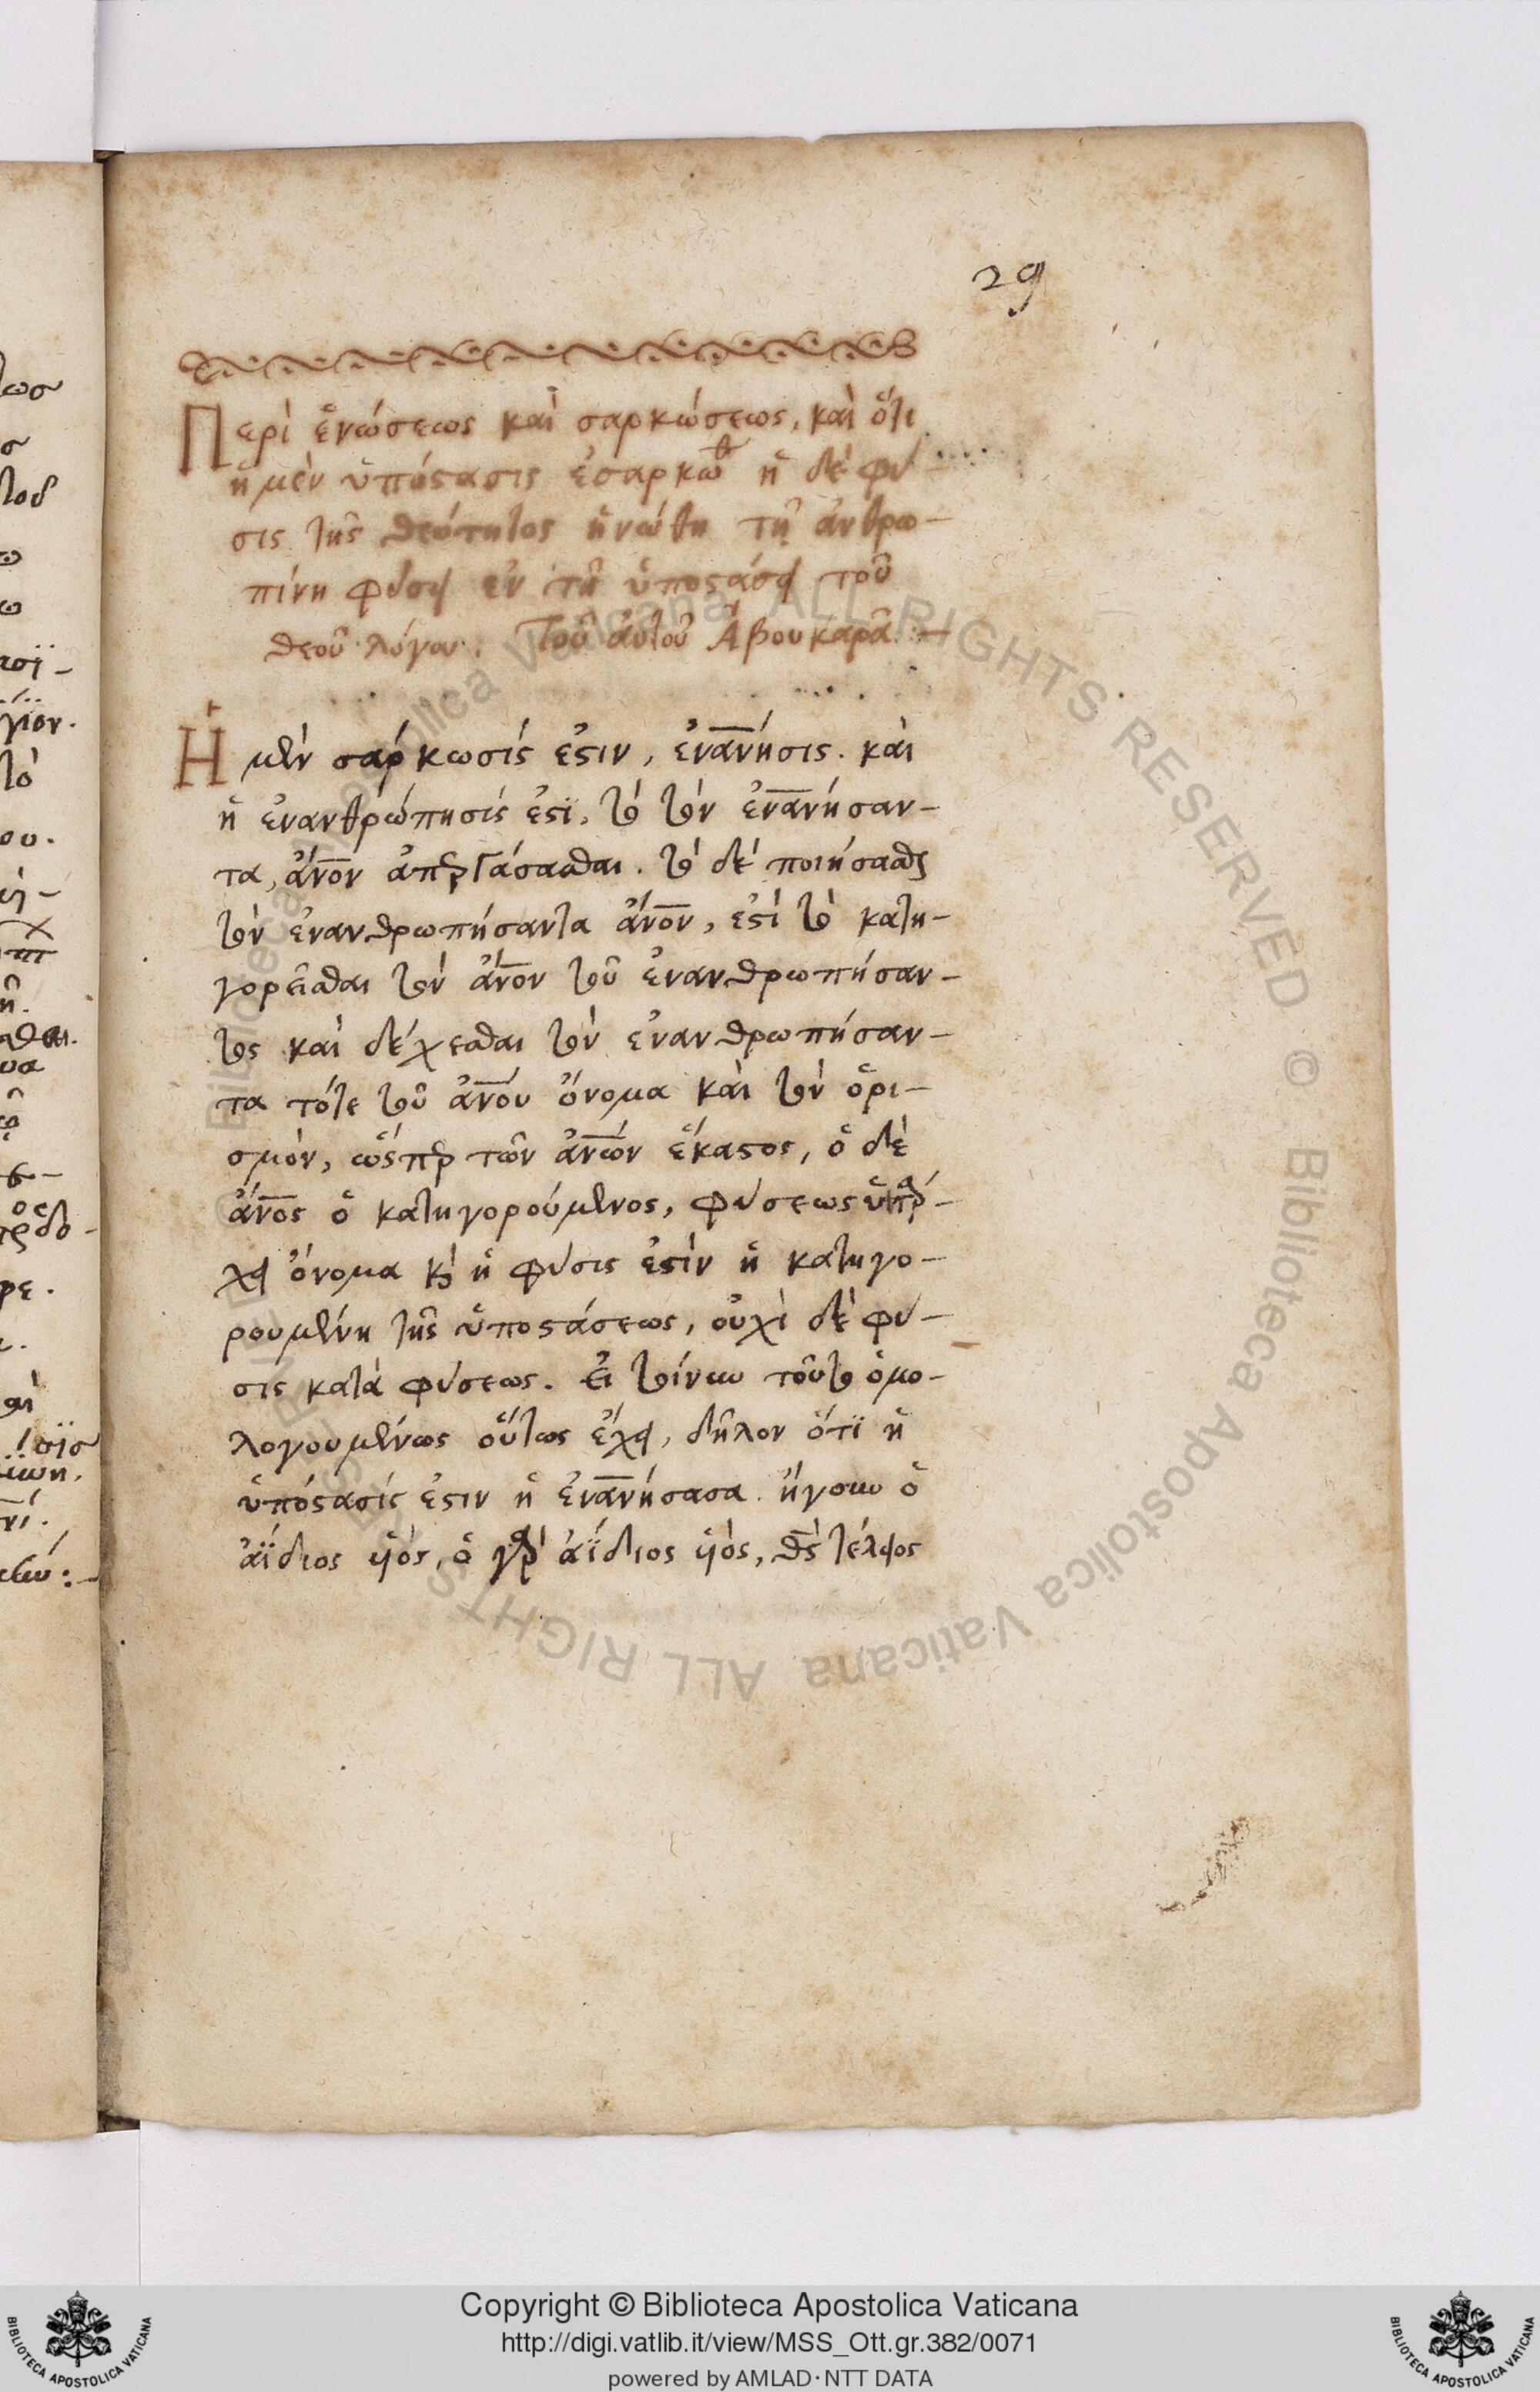 29
Περὶ ἑνώσεως καὶ σαρκώσεως, καὶ ὅτι
ἡ μὲν ὑπόστασις ἐσαρκώθ ἡ δὲ φύ-
σις τῆς θεότητος ἡνώθη τῇ ἀνθρω-
πίνη φύσει ἐν τῆ ὑποστάσει τοῦ
θεοῦ λόγου. Τοῦ ἀυτοῦ Ἀβουκαρᾶ :-
Ἡ μὲν σάρκωσίς ἐστιν, ἐνανησις. καὶ
ἡ ἐνανθρώπησίς ἐστϊ, τὸ τὸν ἐνανήσαν-
τα, ἄνον ἀπεργάσασθαι. τὸ δὲ ποιήσασθαι
τὸν ἐνανθρωπήσαντα ἄνον, ἐστὶ τὸ κατη-
γορεῖσθαι τὸν ἄνον τοῦ ἐνανθρωπήσαν-
τος καὶ δέχεσθαι τὸν ἐνανθρωπήσαν-
τα τότε τοῦ ἀνου ὄνομα καὶ τὸν ὁρι-
σμὸν, ὥσπερ τῶν ἀνων ἕκαστος, ὁ δὲ
ἄνος ὁ κατηγορούμενος, φύσεως ὑπάρ-
χει ὄνομα κὶ ἡ φύσις ἐστὶν ἡ κατηγο-
ρουμένη τῆς ὑποστάσεως, οὐχὶ δὲ φύ-
σις κατὰ φύσεως. Εἰ τοίνυν τοῦτο ὁμο-
λογουμένως οὕτως ἔχει, δῆλον ὅτϊ ἡ
ὑπόστασίς ἐστιν ἡ ἐνανήσασα. ἤγουν ὁ
ἀΐδιος υἱός, ὁ γὰρ ἀΐδιος υἱός, θς τέλειος
Copyright © Biblioteca Apostolica Vaticana
http://digi.vatlib.it/view/MSS_Ott.gr.382/0071
powered by AMLAD·NTT DATA